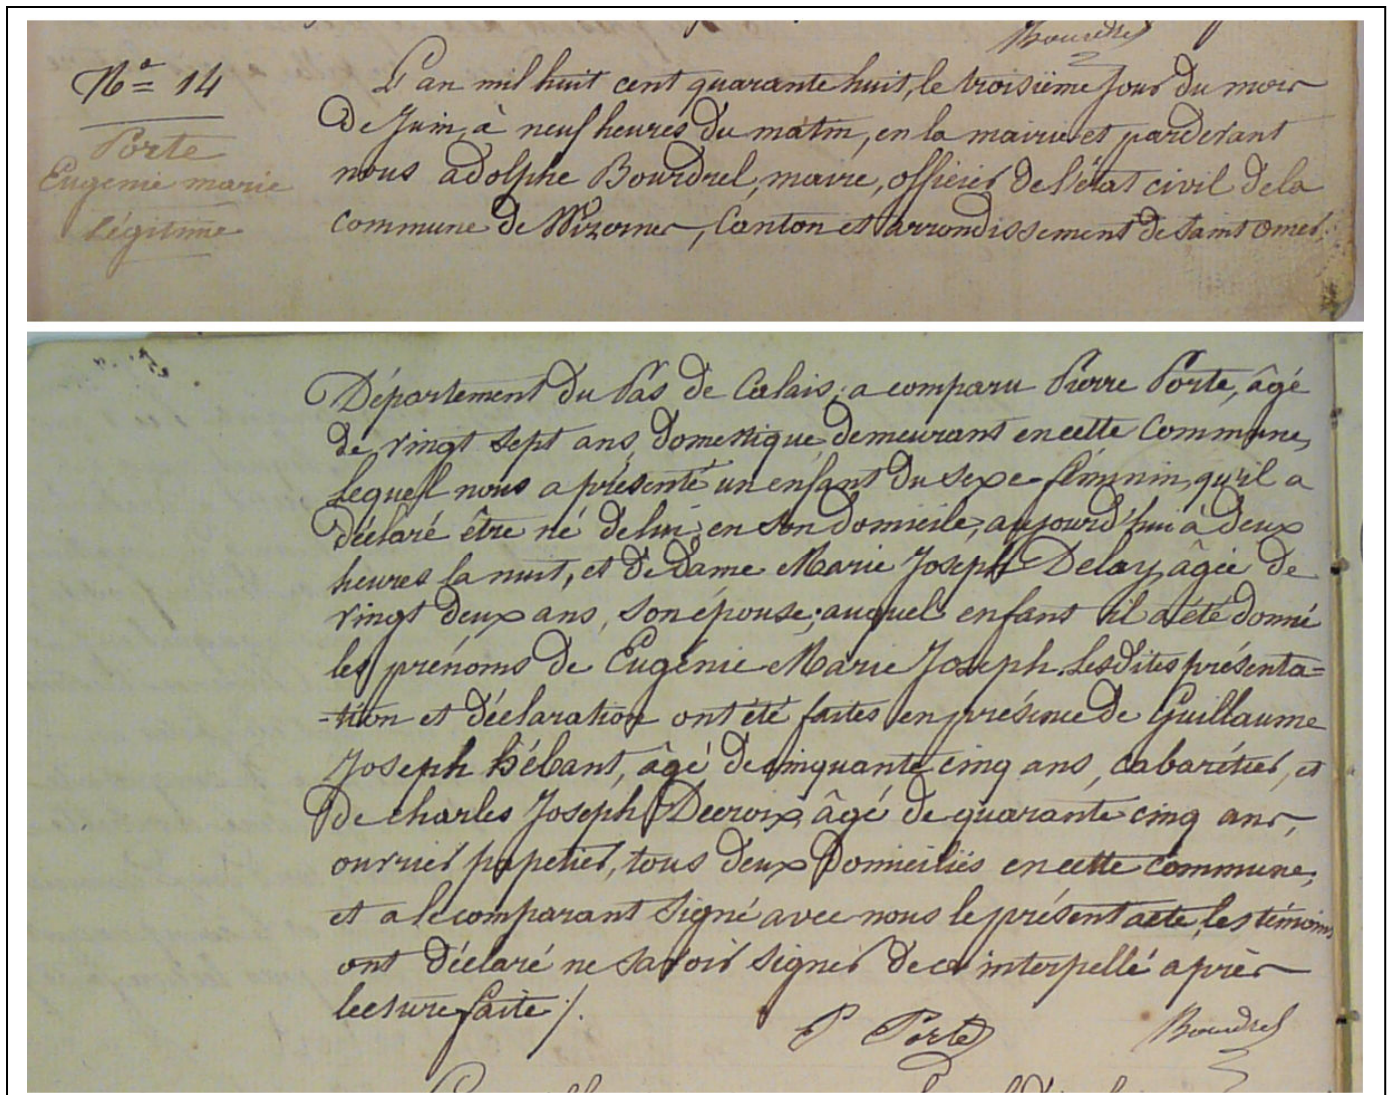 Bourdrel
Nº 14
Porte
Eugenie marie
Légitime
L'an mil huit cent quarante huit, le troisième jour du mois
de Juin, à neuf heures du matin, en la mairie et pardevant
nous adolphe Bourdrel, maire, officier de l'état civil de la
commune de Wizernes, Canton et arrondissement de Saint Omer,
Département du Pas de Calais, a comparu Pierre Porte, âgé
de vingt sept ans, domestique, demeurant en cette Commune,
lequel nous a présenté un enfant du sexe féminin, qu'il a
déclaré être né de lui, en son domicile, aujourd'hui à deux
heures la nuit, et de Dame Marie Joseph Delay, âgée de
vingt deux ans, son épouse; auquel enfant il a été donné
les prénoms de Eugénie Marie Joseph. Lesdites présenta=
-tion et déclaration ont été faites en présence de Guillaume
Joseph Hébant, âgé de cinquante cinq ans, cabarétier, et
de charles Joseph Decroix, âgé de quarante cinq ans,
ouvrier papetier, tous deux domiciliés en cette commune;
et a le comparant signé avec nous le présent acte, les témoins
ont déclaré ne savoir signer de ce interpellé après
lecture faite /.
P Porte
Bourdrel